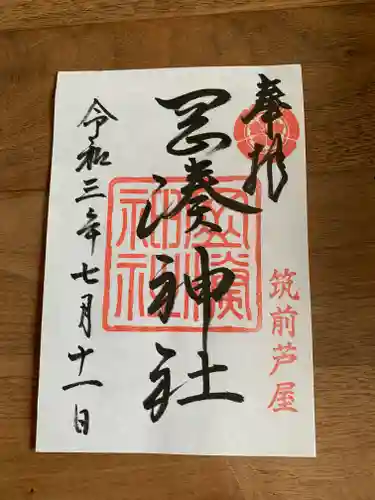 奉拝
岡湊神社
岡湊神社
筑前芦屋
令和三年七月十一日